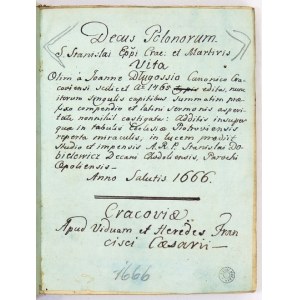 Decus Polonorum
S. Stanislai Eppi Crac. et Martiris
Vita
Olim à Joanne Dlugossio Canonico Cra-
coviensi scilicet Aº 1460 typis edita, nunc
singulis capitibus Summatim præ-
fixo compendio et latini sermonis asperi-
tate nonnihil castigata: Additis insuper
quæ in tabulis Ecclesiæ Piotroviensis
reperta miraculis, in lucem prodiit
Studio et impensis A.R.P. Stanislai Do-
bielewicz Decani Radoliensis, Parochi
Opoliensis —
Anno Salutis 1666.
Cracoviæ
Apud Viduam et Heredes Fran
cisci Cæsarii —
1666